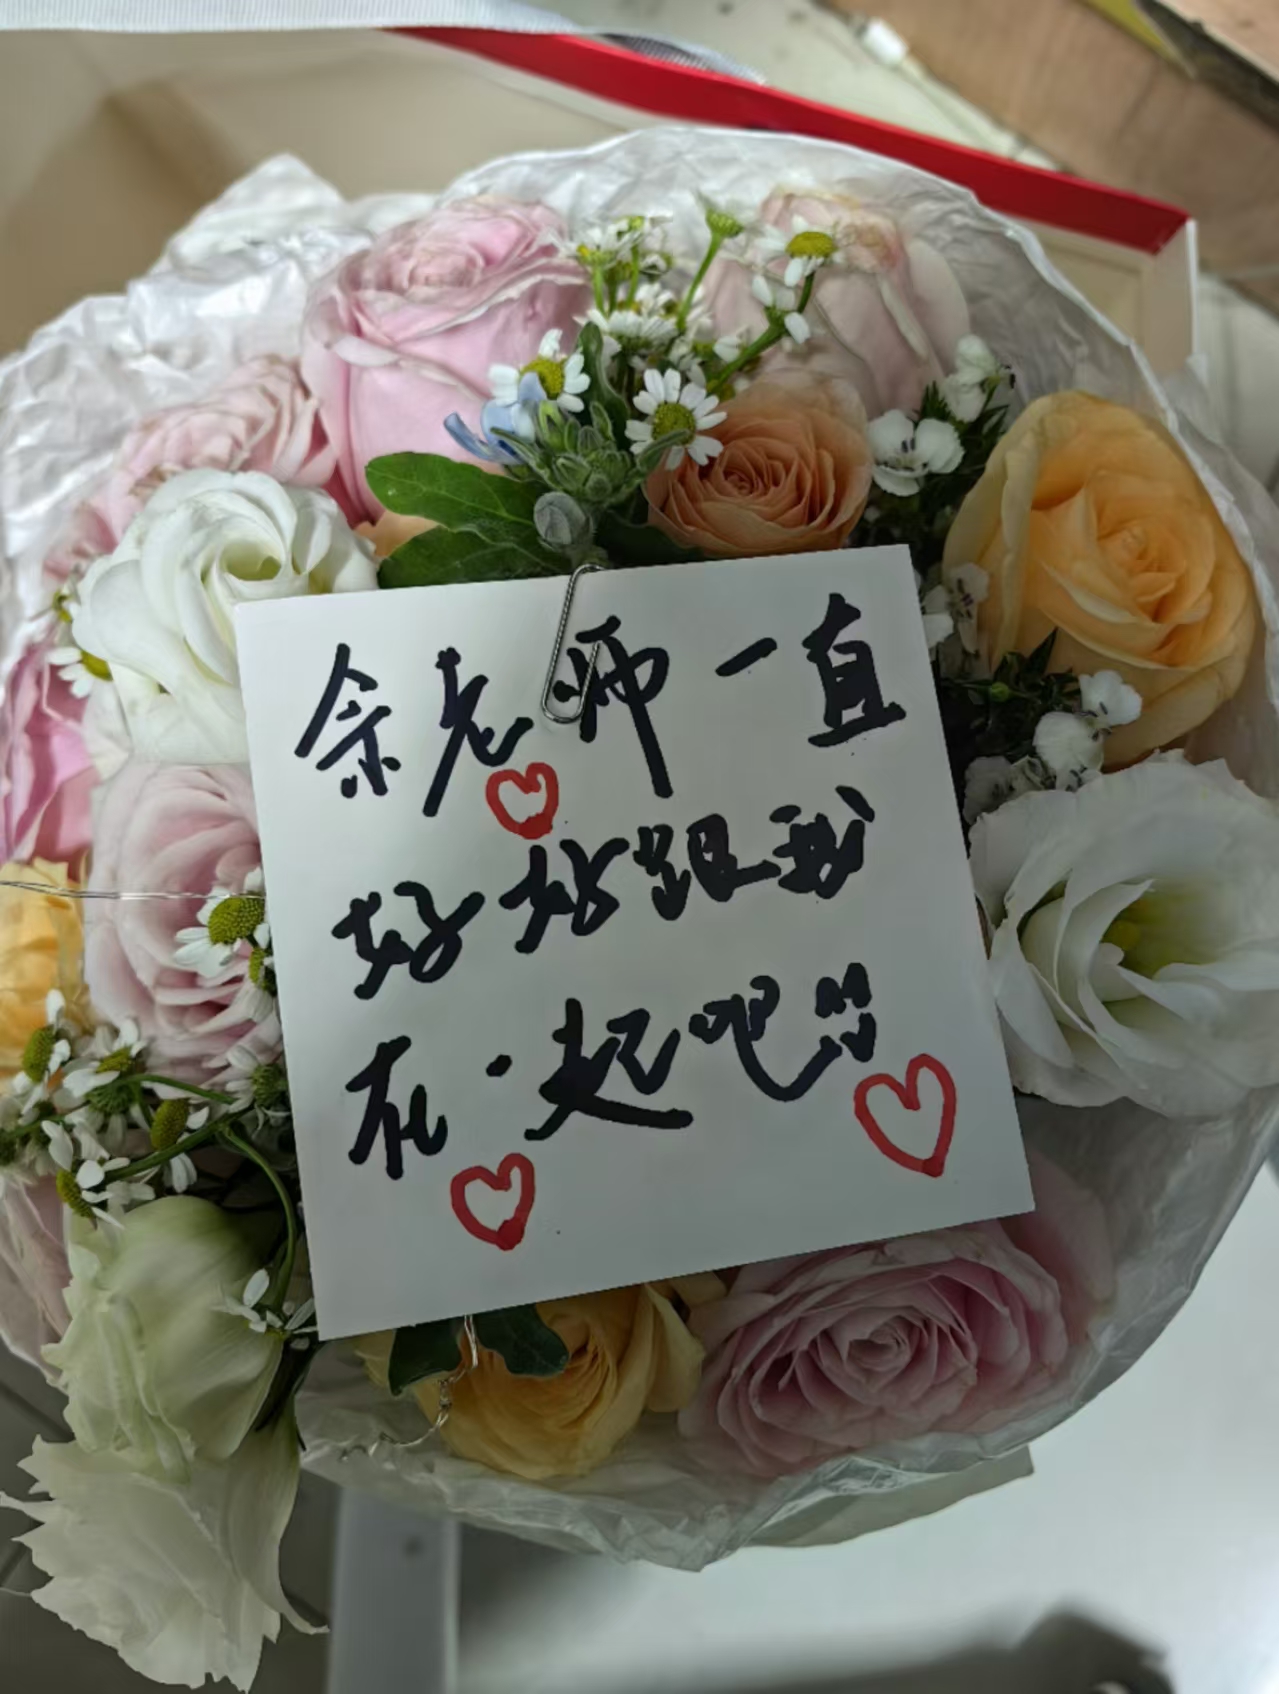 余老师一直
好好跟我
在一起吧!!